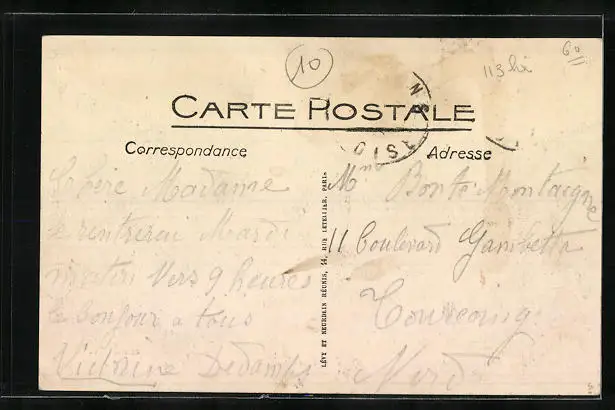 10
113 hx
60
CARTE POSTALE
Correspondance
Adresse
Chère Madame
Je rentrerai Mardi
matin vers 9 heures
le bonjour a tous
Victorine Dedamps
LÉVY ET NEURDEIN RÉUNIS, 44, RUE LETELLIER, PARIS
Mr Bonte Montaigne
11 boulevard Gambetta
Tourcoing
Nord